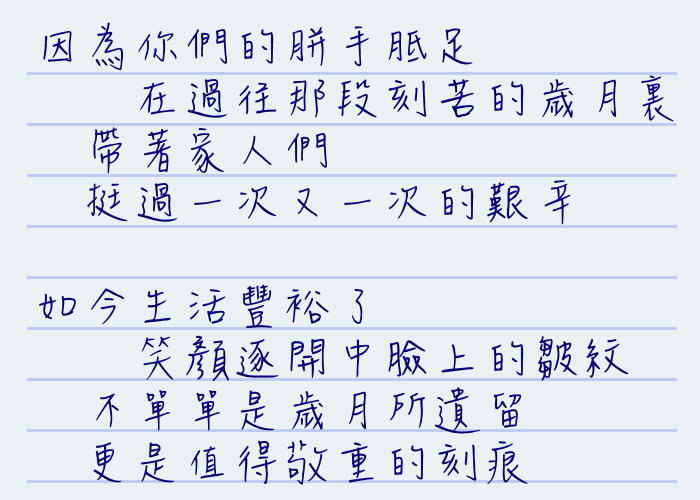 因為你們的胼手胝足
在過往那段刻苦的歲月裏
帶著家人們
挺過一次又一次的艱辛
如今生活豐裕了
笑顏逐開中臉上的皺紋
不單單是歲月所遺留
更是值得敬重的刻痕